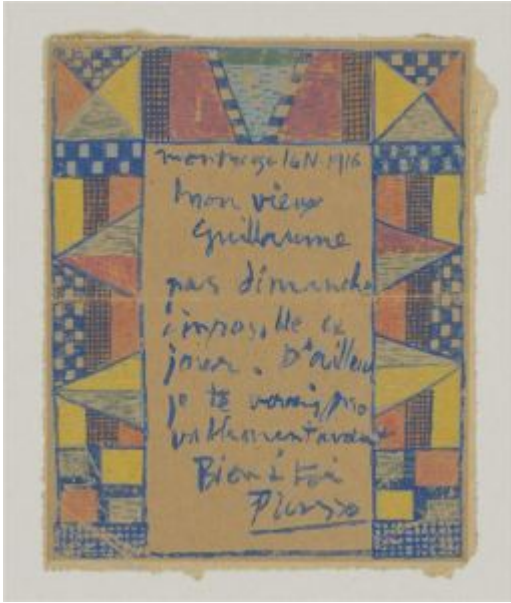 montrouge 16 N. 1916
mon vieux
Guillaume
pas dimanche
impossible ce
jour. D'ailleur
je te verrai pro
bablement avant
Bien à toi
Picasso